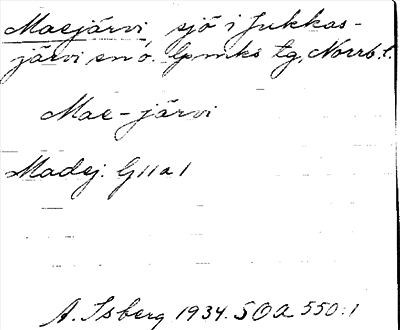 Maejärvi sjö i Jukkas-
järvi sn o. lpmks tg, Norrb. l.
Mae-järvi
Madej. G11a1
A. Isberg 1934. SOA 550:1